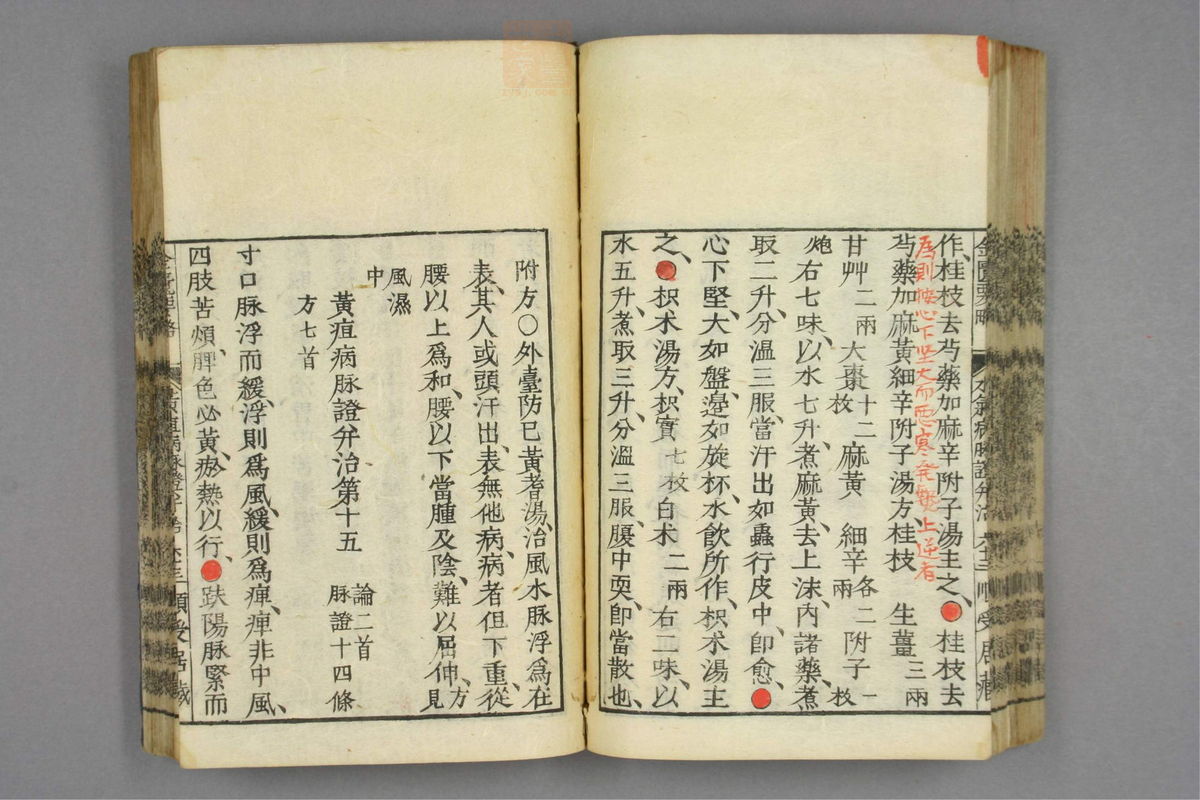 作、桂枝去芍藥加麻辛附子湯主之、●桂枝去
為則按心下堅大而惡寒發上逆者
芍藥加麻黃細辛附子湯方、桂枝 生薑三兩
甘艸二兩 大棗十二枚 麻黃 細辛各二兩 附子一枚
炮右七味、以水七升、煮麻黃、去上沫、內諸藥、煮
取二升、分溫三服、當汗出如蟲行皮中、卽愈、●
心下堅、大如盤、邉如旋杯、水飲所作、枳朮湯主
之、●枳朮湯方、枳實七枚白朮二兩右二味、以
水五升、煮取三升、分溫三服、腹中耎、卽當散也、
附方○外臺防已黃耆湯、治風水脉浮爲在
表、其人或頭汗出、表無他病、病者但下重、從
腰以上爲和、腰以下當腫及陰、難以屈伸、方見
風濕中
黃疸病脉證弁治第十五 論二首 脉證十四條
方七首
寸口脉浮而緩、浮則爲風、緩則爲痺、痺非中風、
四肢苦煩、脾色必黃、瘀熱以行、●趺陽脉緊而
水氣病脉證弁治
順受居藏
順受居藏